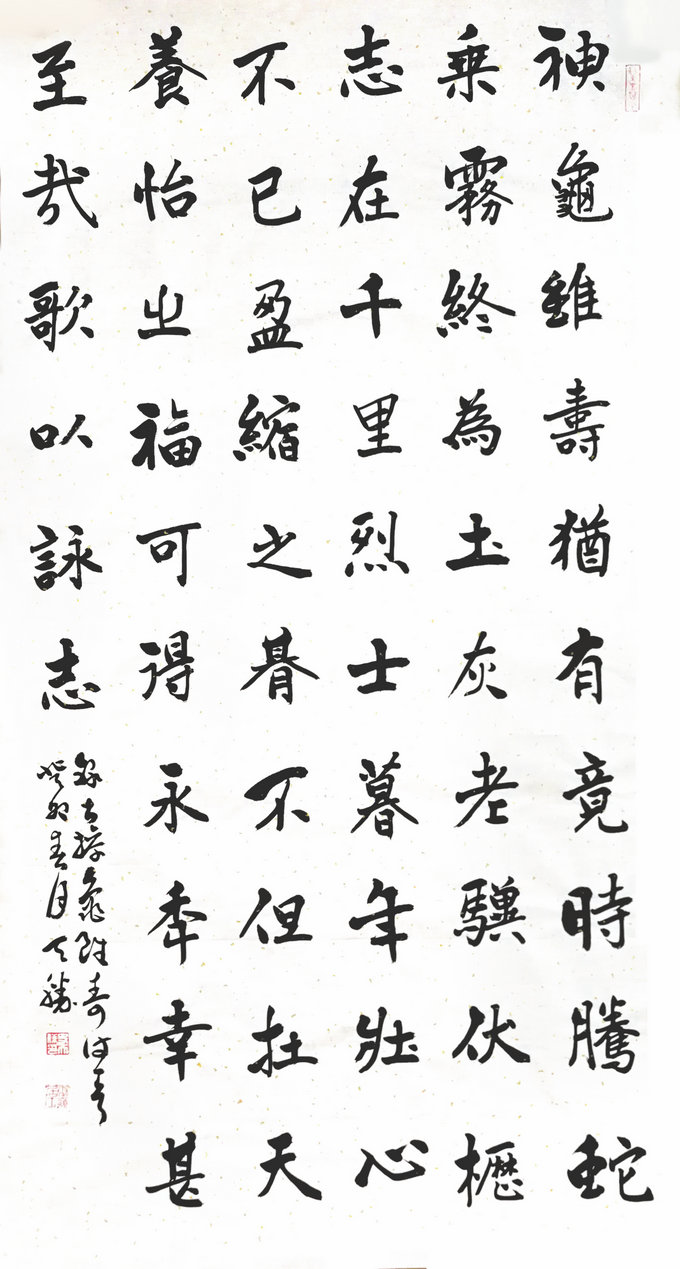 神龜雖壽猶有竟時騰蛇
乘霧終為土灰老驥伏櫪
志在千里烈士暮年壯心
不已盈縮之朞不但在天
養怡之福可得永秊幸甚
至哉歌以詠志
錄 操龜雖壽詩
癸卯春月天勝